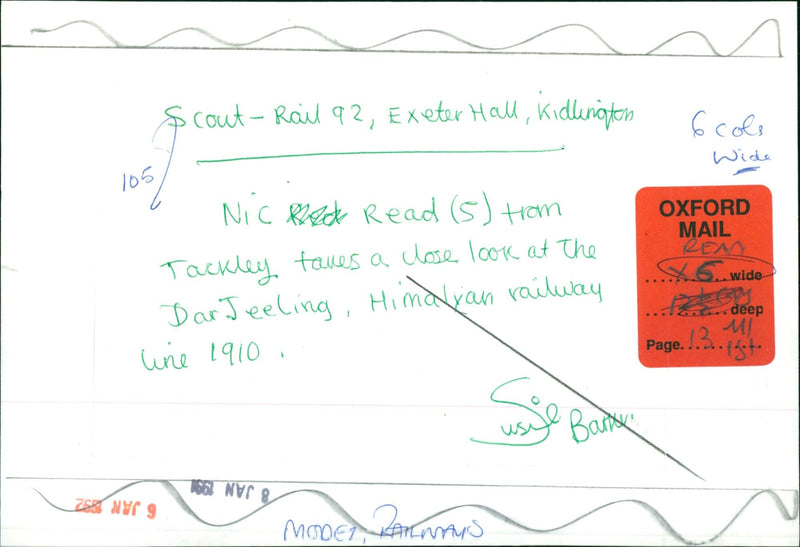 Scout - Rail 92, Exeter Hall, Kidlington
6 cols
Wide
105
Nic Read (5) from
Tackley takes a close look at the
DarJeeling, Himalyan railway
line 1910.
Susie
OXFORD
MAIL
X6 wide
deep
Page 13 M/
1st
8 JAN 199
6 JAN 1992
MODEL RAILWAYS